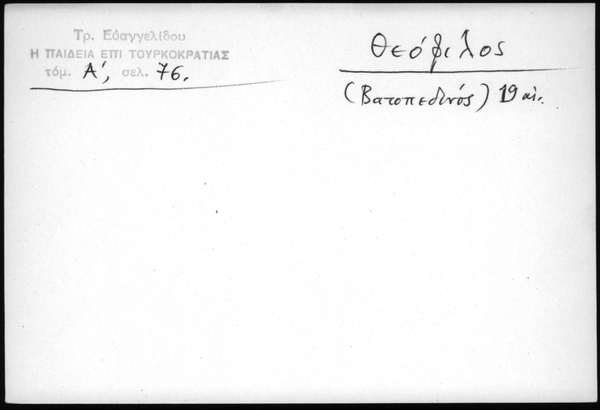 Τρ. Εὐαγγελίδου
Η ΠΑΙΔΕΙΑ ΕΠΙ ΤΟΥΡΚΟΚΡΑΤΙΑΣ
τόμ. Α', σελ. 76.
Θεόφιλος
(Βατοπεδινός) 19 αἰ.